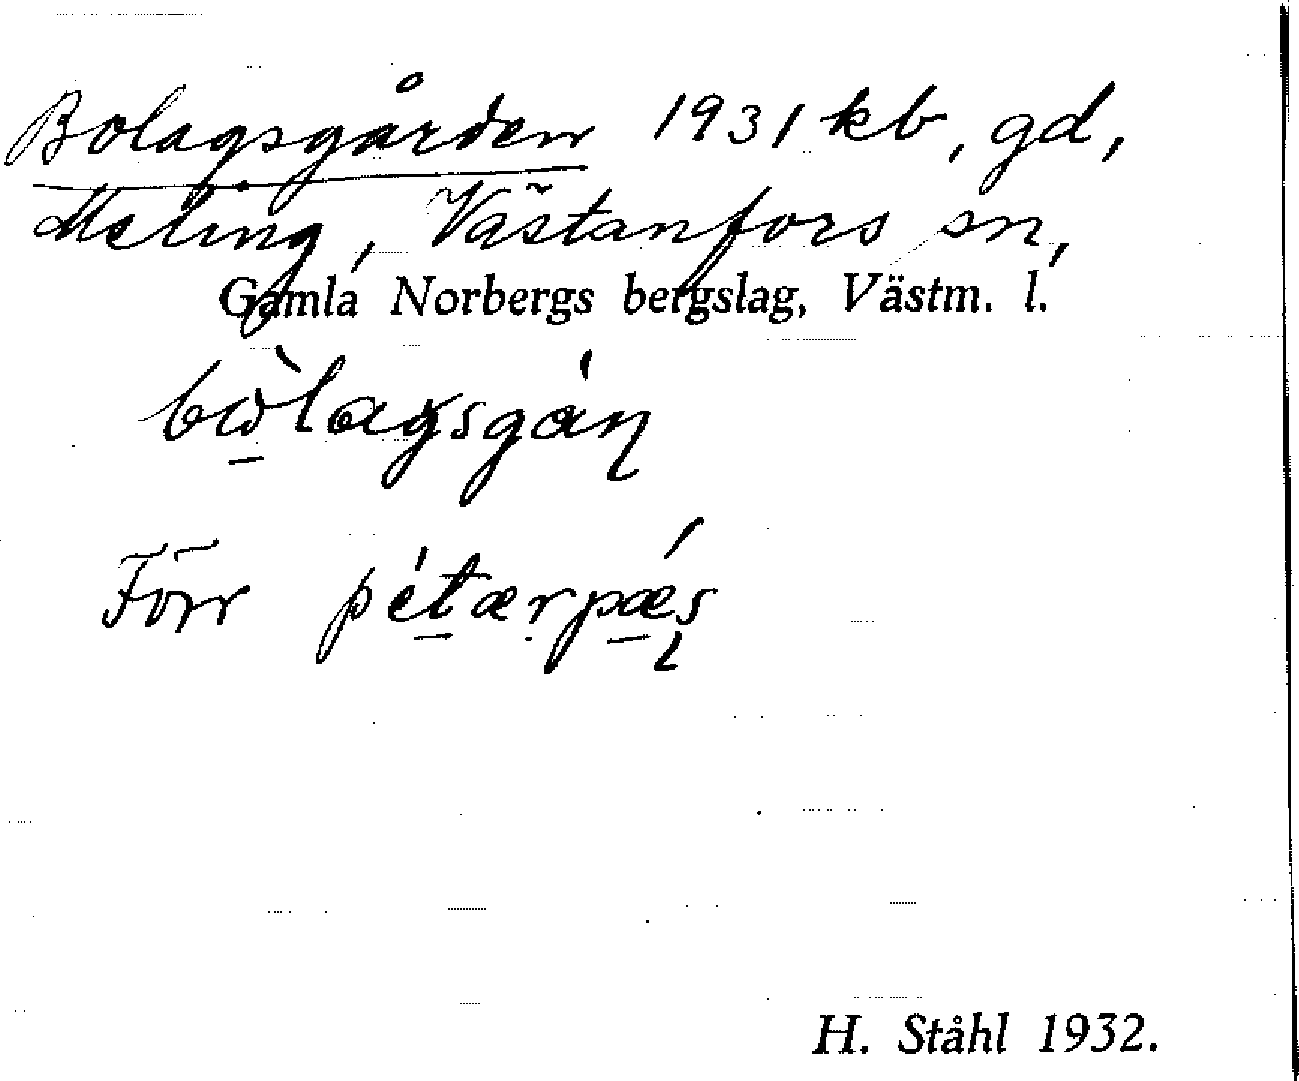 Bolagsgården 1931 kb, gd,
Meling, Västanfors sn,
Gamla Norbergs bergslag, Västm. l.
bὼlagsgáɳ
Förr pétærpæ̱ʂ
H. Ståhl 1932.